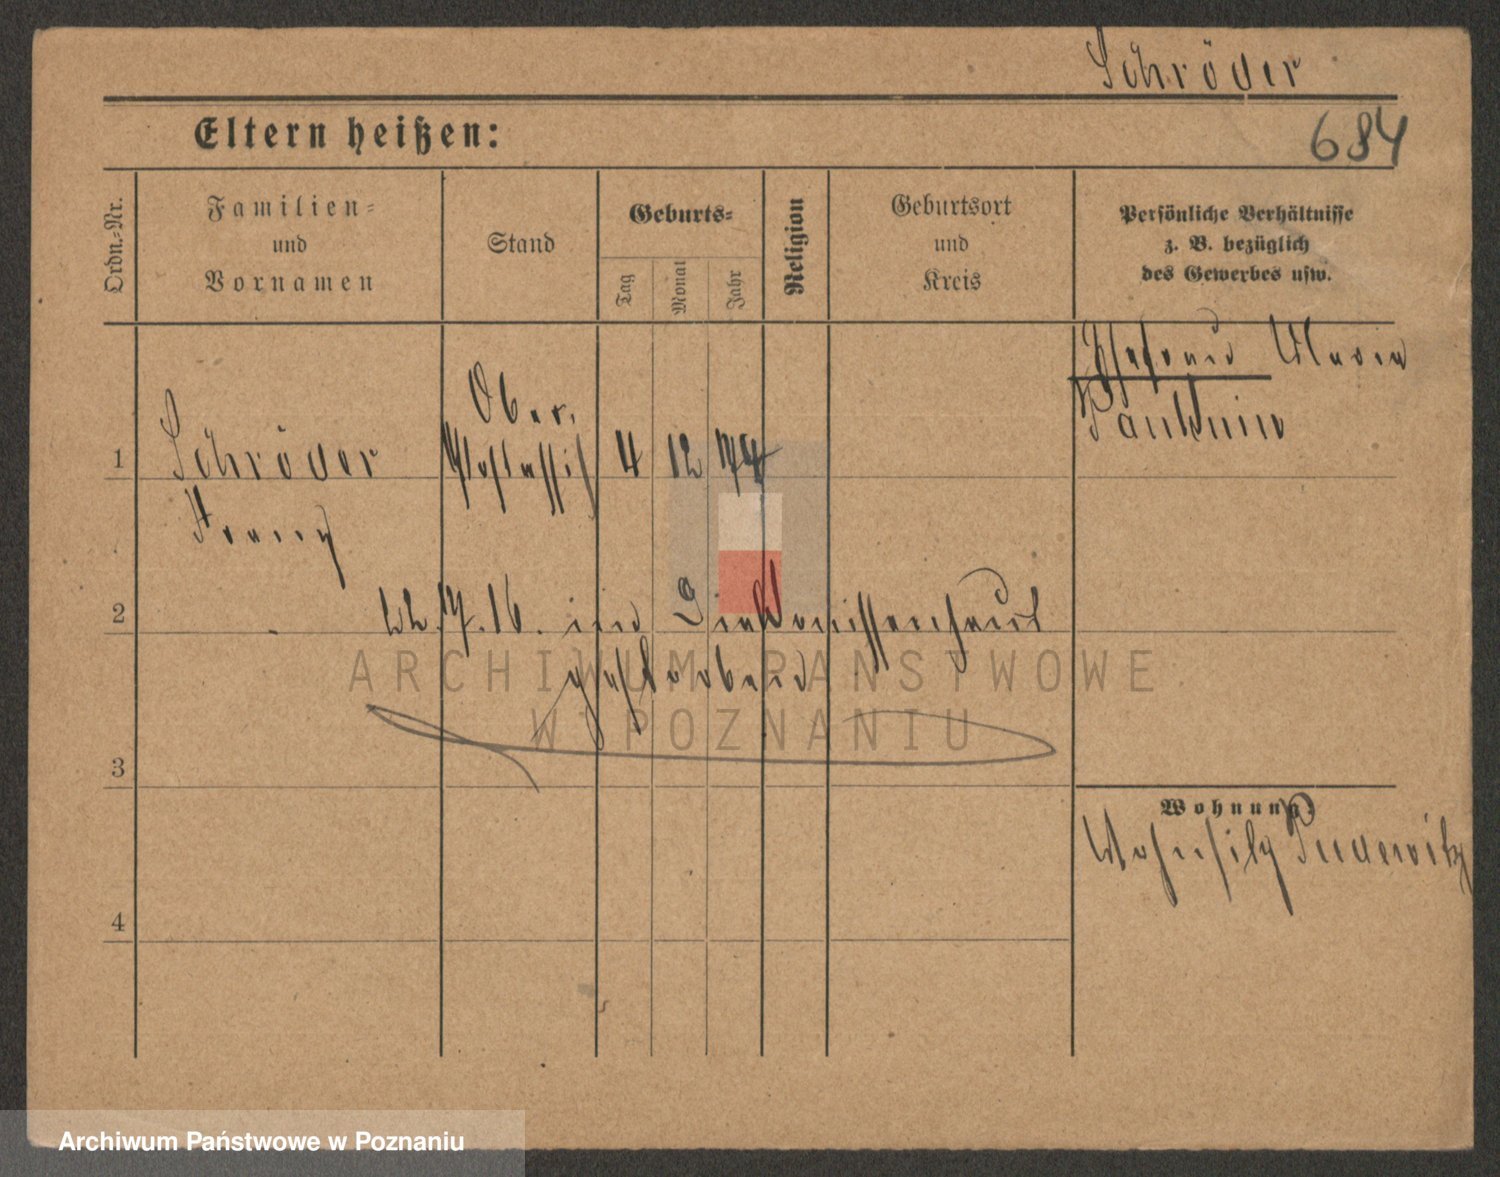 Schröder
684
Eltern heißen:
Ordn.-Nr.
Familien-
und
Vornamen
Stand
Geburts-
Tag
Monat
Jahr
Religion
Geburtsort
und
Kreis
Persönliche Verhältnisse
z. B. bezüglich
des Gewerbes usw.
Ehefrau Maria
1
Schröder
Franz
Ober
Postassist
4
12
74
2
22.7.16. im Diakonissenhaus
gestorben
ARCHIWUM PAŃSTWOWE
W POZNANIU
3
Wohnung:
Wohnsitz Pudewitz
4
Archiwum Państwowe w Poznaniu